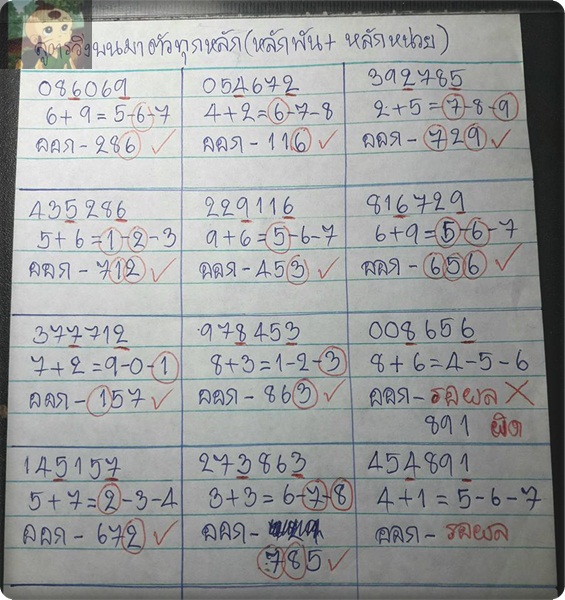 สูตรวิ่งบนมาตัวทุกหลัก(หลักพัน+หลักหน่วย)
086069
6+9=5-6-7
ออก-286 ✓
054672
4+2=6-7-8
ออก-116 ✓
392785
2+5=7-8-9
ออก-729 ✓
435286
5+6=1-2-3
ออก-712 ✓
229116
9+6=5-6-7
ออก-453 ✓
816729
6+9=5-6-7
ออก-656 ✓
377712
7+2=9-0-1
ออก-157 ✓
978453
8+3=1-2-3
ออก-863 ✓
008656
8+6=4-5-6
ออก-รอผล ✗
891 ผิด
145157
5+7=2-3-4
ออก-672 ✓
273863
3+3=6-7-8
ออก-
785 ✓
454891
4+1=5-6-7
ออก-รอผล